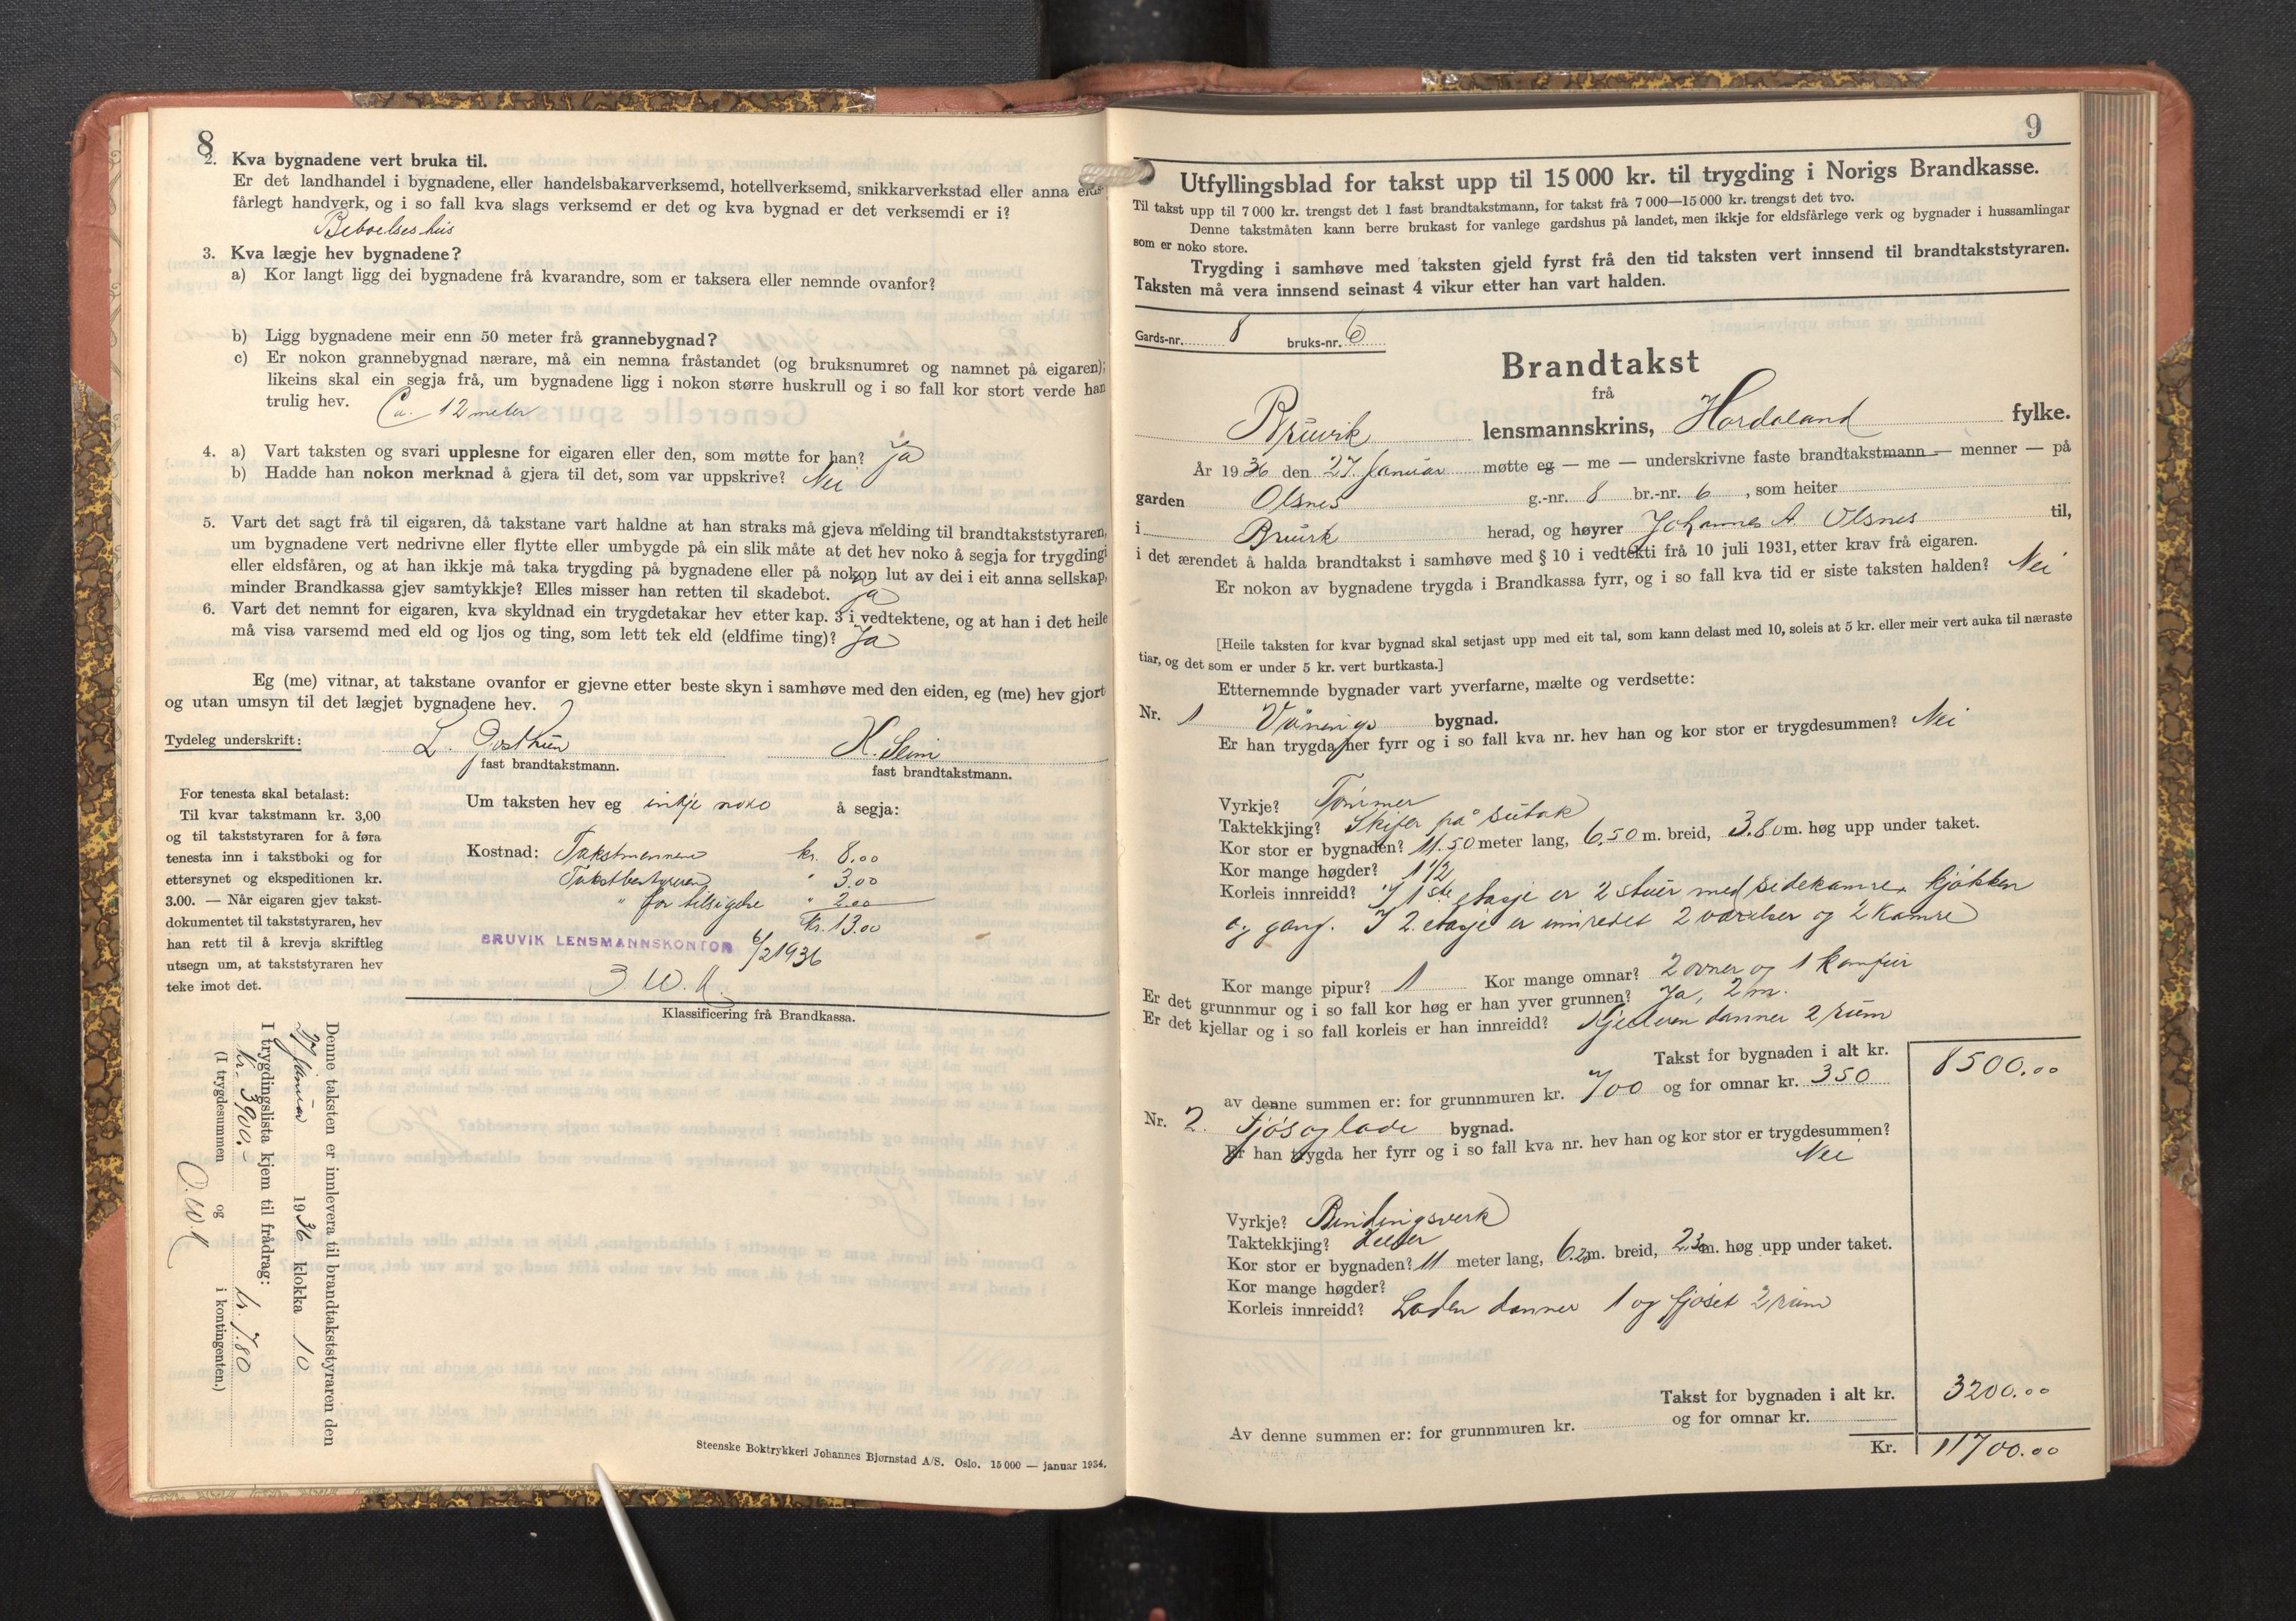 8
2. Kva bygnadene vert bruka til.
Er det landhandel i bygnadene, eller handelsbakarverksemd, hotellverksemd, snikkarverkstad eller anna elds-
fårlegt handverk, og i so fall kva slags verksemd er det og kva bygnad er det verksemdi er i?
Beboelseshus
3. Kva lægje hev bygnadene?
a) Kor langt ligg dei bygnadene frå kvarandre, som er taksera eller nemnde ovanfor?
b) Ligg bygnadene meir enn 50 meter frå grannebygnad?
c) Er nokon grannebygnad nærare, må ein nemna fråstandet (og bruksnumret og namnet på eigaren);
likeins skal ein segja frå, um bygnadene ligg i nokon større huskrull og i so fall kor stort verde han
trulig hev. Ca. 12 meter
4. a) Vart taksten og svari upplesne for eigaren eller den, som møtte for han? Ja
b) Hadde han nokon merknad å gjera til det, som var uppskrive? Nei
5. Vart det sagt frå til eigaren, då takstane vart haldne at han straks må gjeva melding til brandtakststyraren,
um bygnadene vert nedrivne eller flytte eller umbygde på ein slik måte at det hev noko å segja for trygdingi
eller eldsfåren, og at han ikkje må taka trygding på bygnadene eller på nokon lut av dei i eit anna sellskap,
minder Brandkassa gjev samtykkje? Elles misser han retten til skadebot. ja
6. Vart det nemnt for eigaren, kva skyldnad ein trygdetakar hev etter kap. 3 i vedtektene, og at han i det heile
må visa varsemd med eld og ljos og ting, som lett tek eld (eldfime ting)? Ja
Eg (me) vitnar, at takstane ovanfor er gjevne etter beste skyn i samhøve med den eiden, eg (me) hev gjort
og utan umsyn til det lægjet bygnadene hev.
Tydeleg underskrift: L. Gosthun H. Seim
fast brandtakstmann. fast brandtakstmann.
For tenesta skal betalast:
Til kvar takstmann kr. 3,00
og til takststyraren for å føra
tenesta inn i takstboki og for
ettersynet og ekspeditionen kr.
3.00. — Når eigaren gjev takst-
dokumentet til takststyraren, hev
han rett til å krevja skriftleg
utsegn um, at takststyraren hev
teke imot det.
Um taksten hev eg inkje noko å segja:
Kostnad: Takstmennene kr. 8.00
Takstbestyreren " 3.00
" for tilsigelse " 2.00
Kr. 13.00
BRUVIK LENSMANNSKONTOR 6/2 1936
3 W. K.
Klassificering frå Brandkassa.
Denne taksten er innlevera til brandtakststyraren den
27 januar 1936 klokka 10
I trygdingslista kjem til frådrag:
kr. 3900.- kr. 7.80
(I trygdesummen og i kontingenten.)
O. W. K
Steenske Boktrykkeri Johannes Bjørnstad A/S. Oslo. 15 000 — januar 1934.
9
Utfyllingsblad for takst upp til 15 000 kr. til trygding i Norigs Brandkasse.
Til takst upp til 7 000 kr. trengst det 1 fast brandtakstmann, for takst frå 7 000—15 000 kr. trengst det tvo.
Denne takstmåten kann berre brukast for vanlege gardshus på landet, men ikkje for eldsfårlege verk og bygnader i hussamlingar
som er noko store.
Trygding i samhøve med taksten gjeld fyrst frå den tid taksten vert innsend til brandtakststyraren.
Taksten må vera innsend seinast 4 vikur etter han vart halden.
Gards-nr. 8 bruks-nr. 6
Brandtakst
frå
Bruvik lensmannskrins, Hordaland fylke.
År 1936 den 27. Januar møtte eg — me — underskrivne faste brandtakstmann — menner — på
garden Olsnes g.-nr. 8 br.-nr. 6, som heiter
i Bruvik herad, og høyrer Johannes A. Olsnes til,
i det ærendet å halda brandtakst i samhøve med § 10 i vedtekti frå 10 juli 1931, etter krav frå eigaren.
Er nokon av bygnadene trygda i Brandkassa fyrr, og i so fall kva tid er siste taksten halden? Nei
[Heile taksten for kvar bygnad skal setjast upp med eit tal, som kann delast med 10, soleis at 5 kr. eller meir vert auka til næraste
tiar, og det som er under 5 kr. vert burtkasta.]
Etternemnde bygnader vart yverfarne, mælte og verdsette:
Nr. 1 Vånings bygnad.
Er han trygda her fyrr og i so fall kva nr. hev han og kor stor er trygdesummen? Nei
Vyrkje? Tømmer
Taktekkjing? Skifer på sutak
Kor stor er bygnaden? 11.50 meter lang, 6,50 m. breid, 3.80 m. høg upp under taket.
Kor mange høgder? 1 1/2
Korleis innreidd? I 1ste etasje er 2 stuer med sidekamre, kjøkken
og gang. I 2. etasje er innredet 2 værelser og 2 kamre
Kor mange pipur? 1 Kor mange omnar? 2 ovner og 1 komfur
Er det grunnmur og i so fall kor høg er han yver grunnen? Ja, 2 m.
Er det kjellar og i so fall korleis er han innreidd? Kjelleren danner 2 rum
Takst for bygnaden i alt kr. 8500.00
av denne summen er: for grunnmuren kr. 700 og for omnar kr. 350
Nr. 2. Fjøs og lade bygnad.
Er han trygda her fyrr og i so fall kva nr. hev han og kor stor er trygdesummen?
Nei
Vyrkje? Bindingsverk
Taktekkjing? Heller
Kor stor er bygnaden? 11 meter lang, 6.20 m. breid, 2.30 m. høg upp under taket.
Kor mange høgder?
Korleis innreidd? Laden danner 1 og fjøset 2 rum
Takst for bygnaden i alt kr. 3200.00
Av denne summen er: for grunnmuren kr. og for omnar kr.
Kr. 11700.00